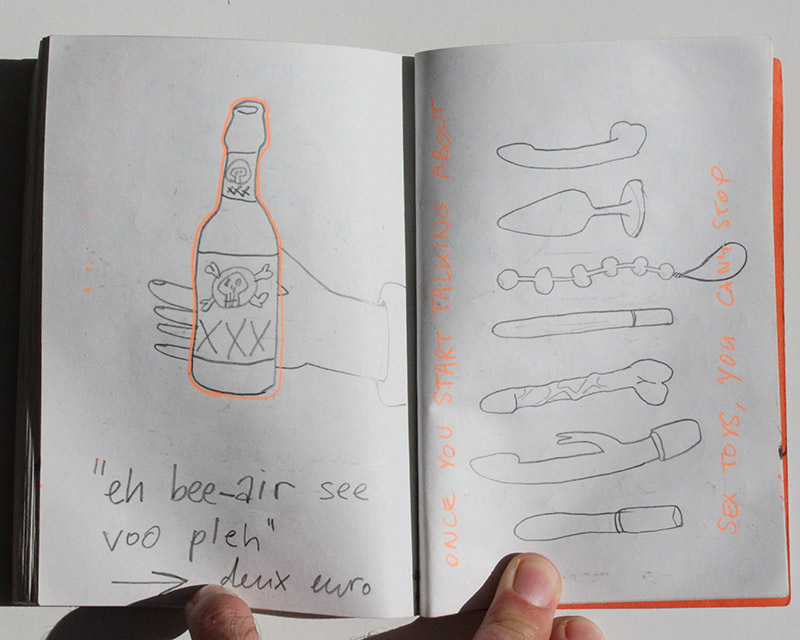 XXX
XXX
"eh bee-air see
voo pleh"
deux euro
ONCE YOU START TALKING ABOUT
SEX TOYS, YOU CAN'T STOP